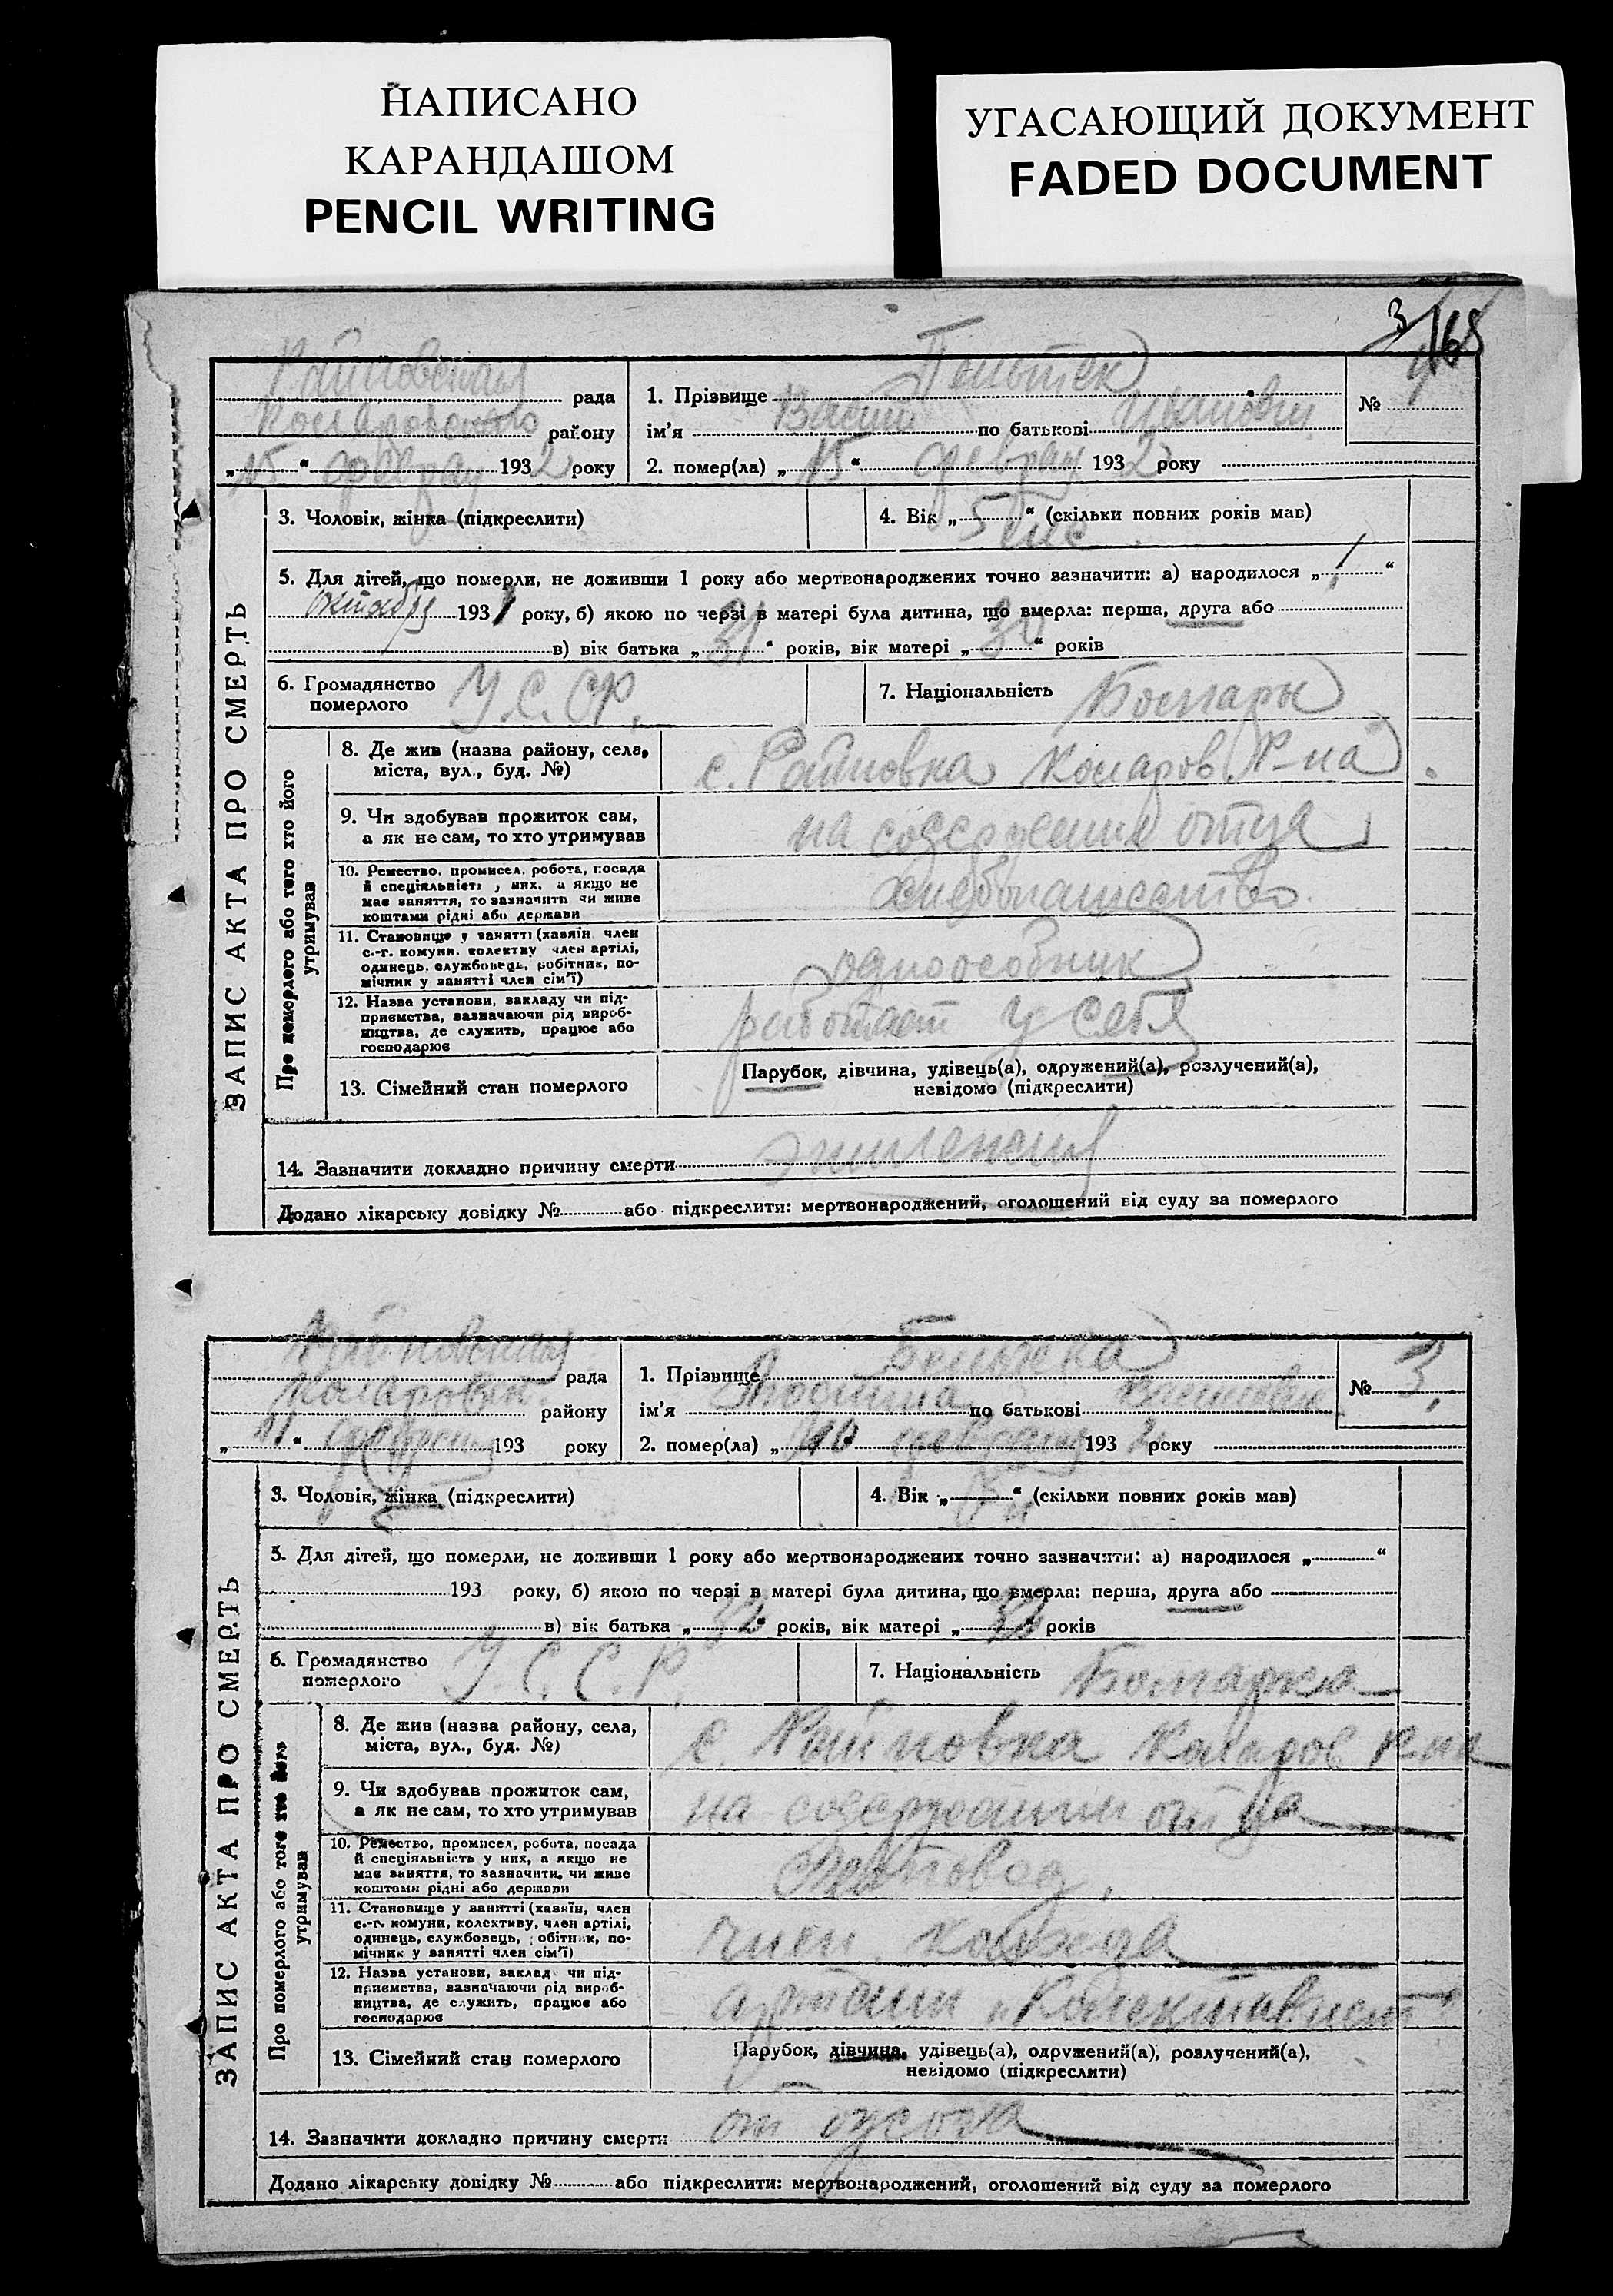 НАПИСАНО
КАРАНДАШОМ
PENCIL WRITING
УГАСАЮЩИЙ ДОКУМЕНТ
FADED DOCUMENT
3
ЗАПИС АКТА ПРО СМЕРТЬ
Райновская рада
району
„15“ феврал 1932 року
1. Прізвище
ім'я Васил по батькові Иванович
№
2. помер(ла) „15“ феврал 1932 року
3. Чоловік, жінка (підкреслити)
4. Вік „5“ (скільки повних років мав)
5. Для дітей, що померли, не доживши 1 року або мертвонароджених точно вазначити: а) народилося „1“
октября 1931 року, б) якою по черзі в матері була дитина, що вмерла: перша, друга або
в) вік батька „31“ років, вік матері „30“ років
6. Громадянство
померлого
У.С.СР.
7. Національність Болгары
Про померлого або того хто його
утримував
8. Де жив (назва району, села,
міста, вул., буд. №)
с. Райновка Коларов. Р-на
9. Чи здобував прожиток сам,
а як не сам, то хто утримував
на содержении отца
10. Ремество, промисел, робота, посада
й спеціяльність у них, а якщо не
має заняття, то вазначити чи живе
коштами рідні або держави
хлебопашество
11. Становище у занятті (хазяїн, член
с.-г. комуни, колективу член артілі,
одинець, службовець, робітник, по-
мічник у занятті член сім'ї)
одноособник
12. Назва установи, закладу чи під-
приємства, вазначаючи рід вироб-
ництва, де служить, працює або
господарює
работает у себя
13. Сімейний стан померлого
Парубок, дівчина, удівець(а), одружений(а), розлучений(а),
невідомо (підкреслити)
14. Зазначити докладно причину смерти эпилепсия
Додано лікарську довідку № або підкреслити: мертвонароджений, оголошений від суду за померлого
ЗАПИС АКТА ПРО СМЕРТЬ
Райновская рада
Коларовск. району
„11“ февраля 193 року
1. Прізвище
ім'я по батькові
№ 3.
2. помер(ла) „10“ февраля 1932 року
3. Чоловік, жінка (підкреслити)
4. Вік „ “ (скільки повних років мав)
5. Для дітей, що померли, не доживши 1 року або мертвонароджених точно зазначити: а) народилося „ “
193 року, б) якою по черзі в матері була дитина, що вмерла: перша, друга або
в) вік батька „32“ років, вік матері „ “ років
6. Громадянство
померлого
У.С.С.Р.
7. Національність Болгарка
Про померлого або того хто його
утримував
8. Де жив (назва району, села,
міста, вул., буд. №)
с. Райновка Коларов р-на
9. Чи здобував прожиток сам,
а як не сам, то хто утримував
на содержании отца
10. Ремество, промисел, робота, посада
й спеціяльність у них, а якщо не
має заняття, то зазначити, чи живе
коштами рідні або держави
11. Становище у занятті (хазяїн, член
с.-г. комуни, колективу, член артілі,
одинець, службовець, робітник, по-
мічник у занятті член сім'ї)
член колхоза
12. Назва установи, закладу чи під-
приємства, вазначаючи рід вироб-
ництва, де служить, працює або
господарює
артели „Колективист“
13. Сімейний стан померлого
Парубок, дівчина, удівець(а), одружений(а), розлучений(а),
невідомо (підкреслити)
14. Зазначити докладно причину смерти от
Додано лікарську довідку № або підкреслити: мертвонароджений, оголошений від суду за померлого